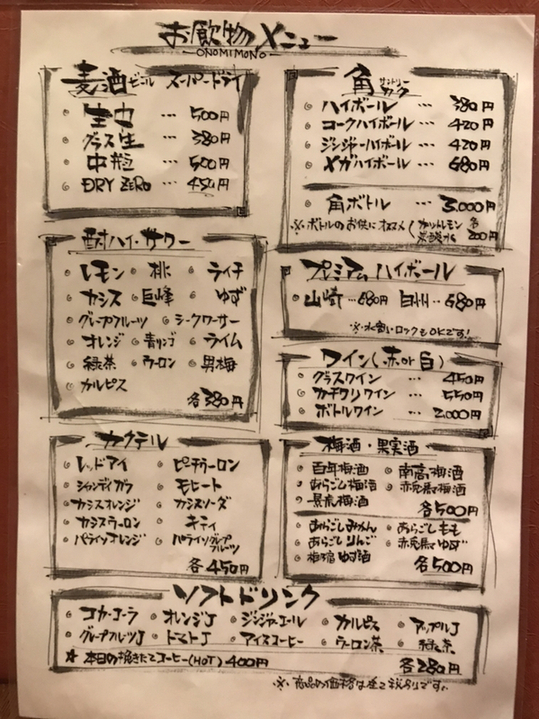 お飲物メニュー
ONOMIMONO
麦酒 ビール スーパードライ
生中 … 500円
グラス生 … 380円
中瓶 … 500円
DRY ZERO … 450円
酎ハイ・サワー
レモン 桃 ライチ
カシス 巨峰 ゆず
グレープフルーツ シークワーサー
オレンジ 青リンゴ ライム
緑茶 ウーロン 男梅
カルピス
各380円
カクテル
レッドアイ ピーチウーロン
シャンディガフ モヒート
カシスオレンジ カシスソーダ
カシスウーロン キティ
パライソオレンジ パライソグレープフルーツ
各450円
角 サントリーカク
ハイボール … 380円
コークハイボール … 420円
ジンジャーハイボール … 420円
メガハイボール … 680円
角ボトル … 3,000円
※ボトルのお供にオススメ (カットレモン 炭酸水 各200円
プレミアムハイボール
山崎 … 680円 白州 … 680円
※水割り・ロックもOKです!
ワイン(赤or白)
グラスワイン … 450円
カチワリワイン … 550円
ボトルワイン … 2,000円
梅酒・果実酒
百年梅酒 南高梅酒
あらごし梅酒 赤兎馬梅酒
黒糖梅酒
各500円
あらごしみかん あらごしもも
あらごしりんご 赤兎馬ゆず
ゆず酒
各500円
ソフトドリンク
コカ・コーラ オレンジJ ジンジャーエール カルピス アップルJ
グレープフルーツJ トマトJ アイスコーヒー ウーロン茶 緑茶
☆本日の挽きたてコーヒー(HOT) 400円
各280円
※商品の価格は全て税別りです。